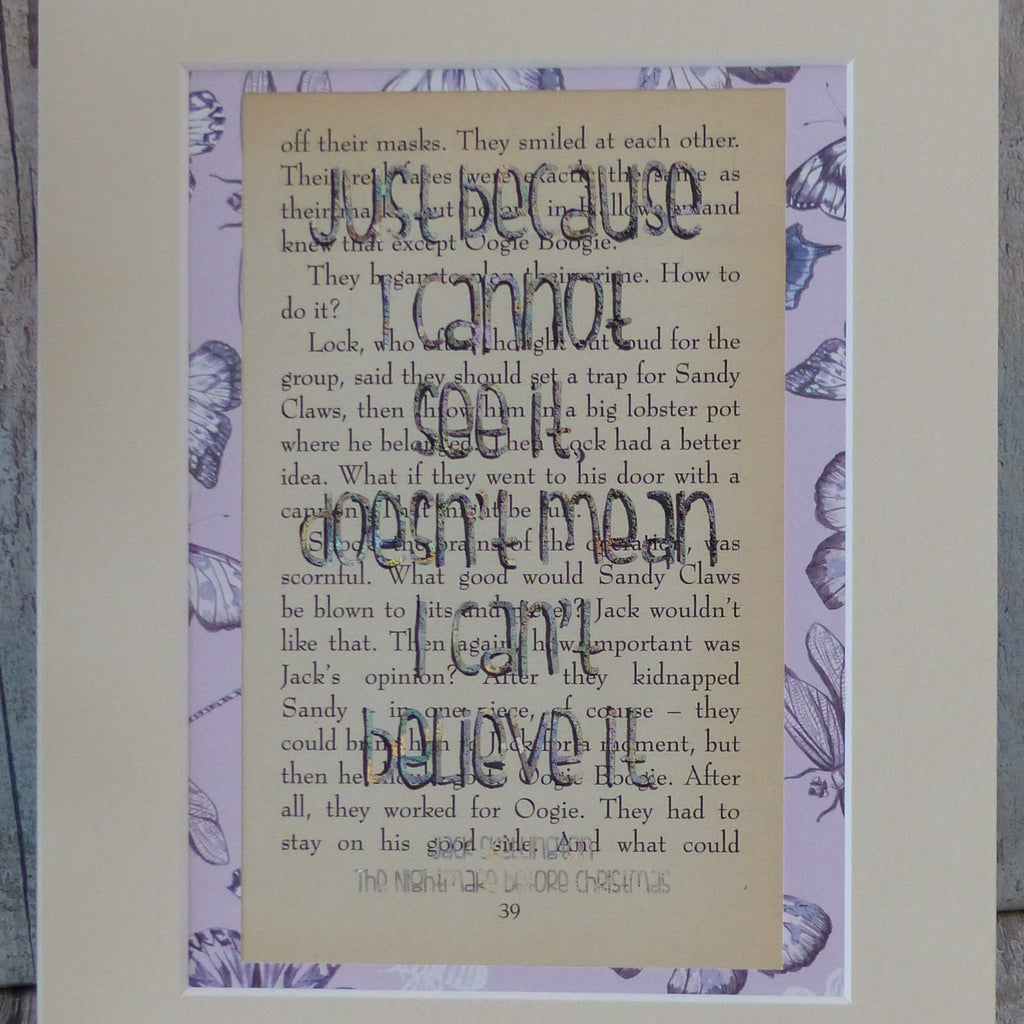 off their masks. They smiled at each other.
Their faces were exactly the same as
Just because
their but in and
knew that except Oogie Boogie.
They began to plan their crime. How to
I cannot
do it?
Lock, who thought out loud for the
group, said they should set a trap for Sandy
Claws, then throw him in a big lobster pot
see it,
where he belonged. Then Lock had a better
idea. What if they went to his door with a
cannon? That might be fun.
doesn't mean
the brains of the operation, was
scornful. What good would Sandy Claws
be blown to bits and pieces)? Jack wouldn't
I can't
like that. Then again, how important was
Jack's opinion? After they kidnapped
Sandy – in one piece, of course – they
believe it
could for a moment, but
then he Oogie Boogie. After
all, they worked for Oogie. They had to
stay on his good side. And what could
Jack Skellington
The Nightmare before Christmas
39